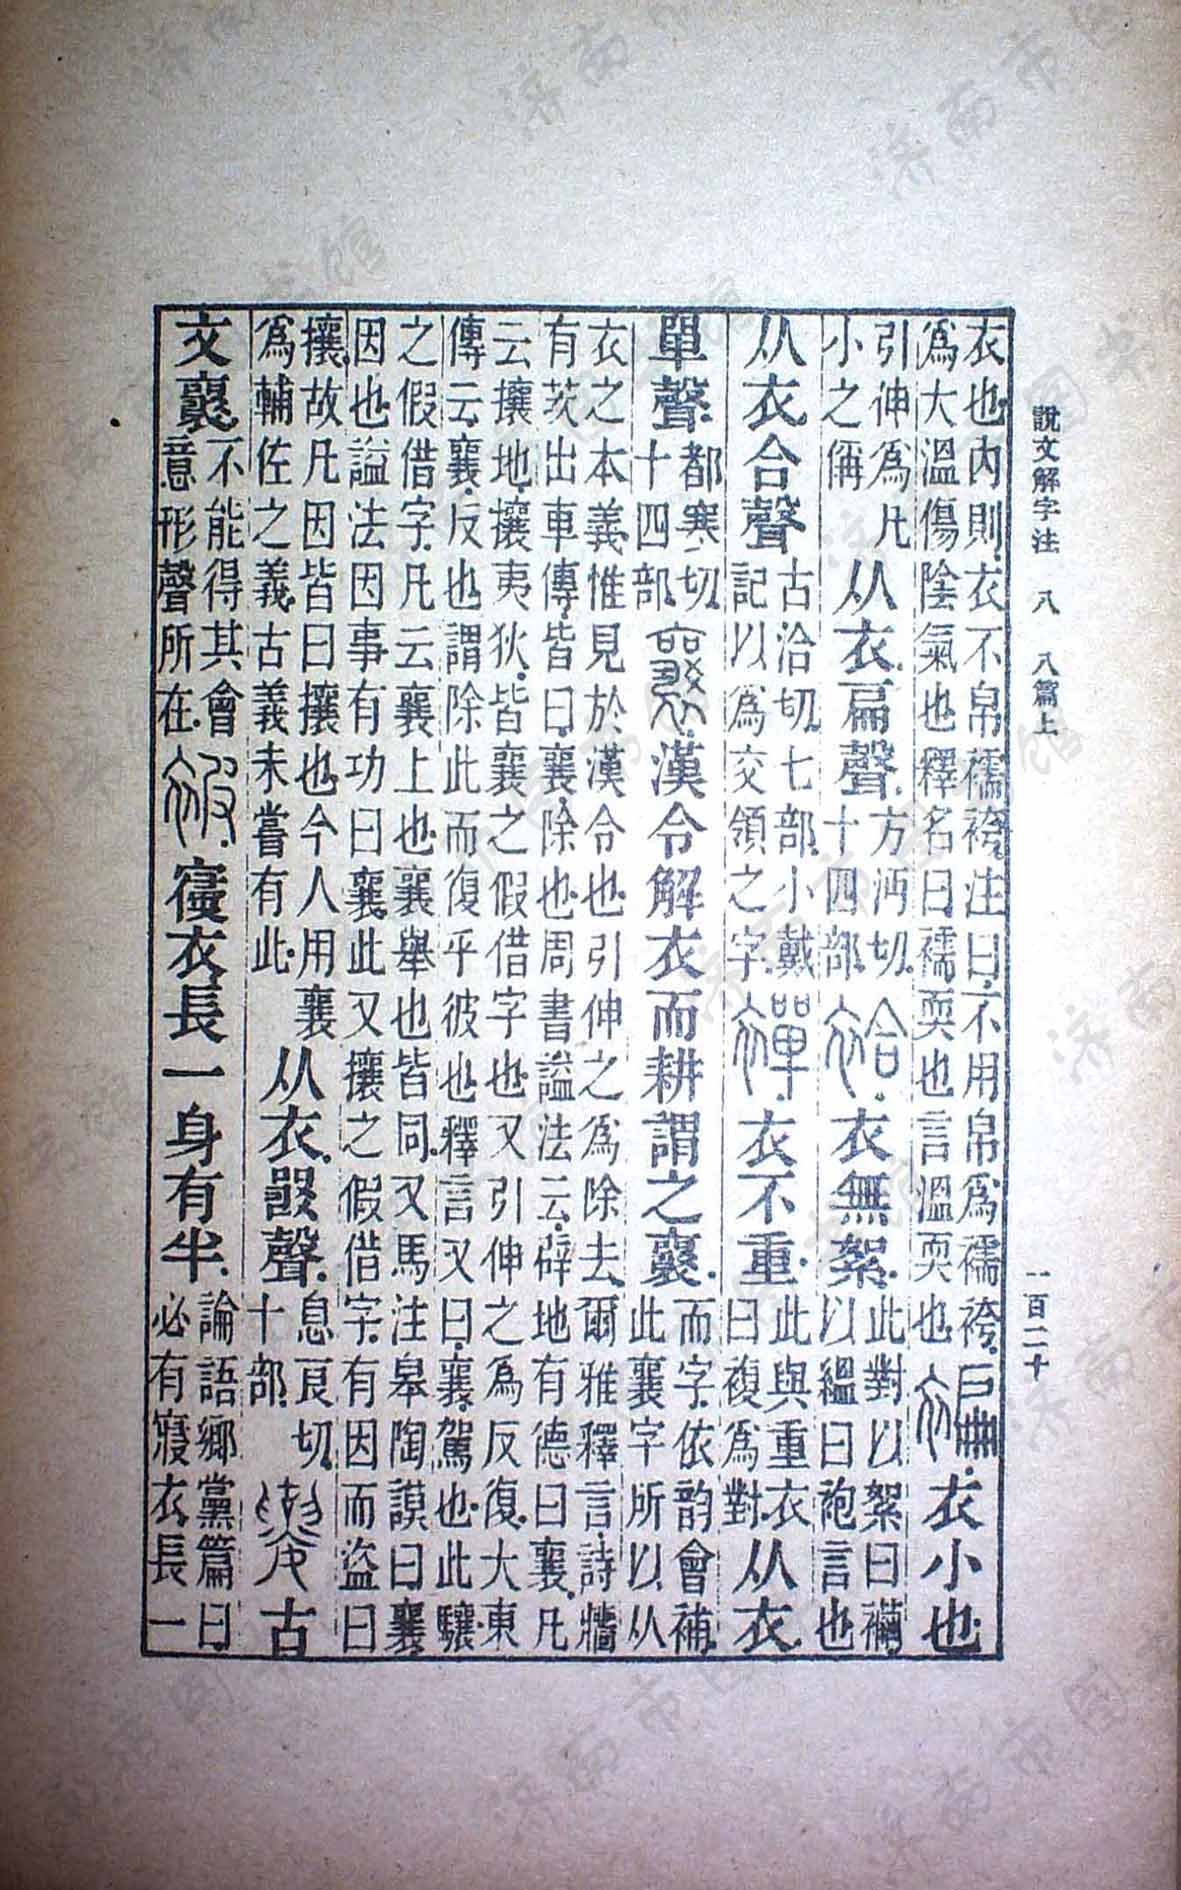 說文解字注 八 八篇上 一百二十
衣也。內則。衣不帛襦袴。注曰。不用帛爲襦袴。爲大溫傷陰氣也。釋名曰襦耎也言溫耎也 褊。衣小也。
引伸爲凡小之偁 从衣。扁聲。方沔切。十四部。袷。衣無絮。此對以絮曰襺以縕曰袍言也
从衣合聲 古洽切。七部。小戴記以爲交領之字。襌。衣不重。此與重衣曰複爲對。从衣。
單聲。都寒切。十四部。襄。漢令解衣而耕謂之襄。而字依韵會補。此襄字所以从
衣之本義惟見於漢令也。引伸之爲除去爾雅釋言。詩牆
有茨出車傳。皆曰。襄。除也周書謚法云。辟地有德曰襄。凡
云攘地。攘夷狄。皆襄之假借字也又引伸之爲反復。大東
傳云。襄。反也謂除此而復乎彼也釋言又曰。襄。駕也。此驤
之假借字。凡云襄上也。襄舉也皆同。又馬注皋陶謨曰襄。
因也。謚法因事有功曰襄。此又攘之假借字。有因而盜曰
攘。故凡因皆曰攘也今人用襄爲輔佐之義。古義未嘗有此。从衣。𤕦聲。息良切。十部。古
文襄。不能得其會意形聲所在。被。寢衣。長一身有半。論語鄉黨篇曰必有寢衣長一
济南市图书馆